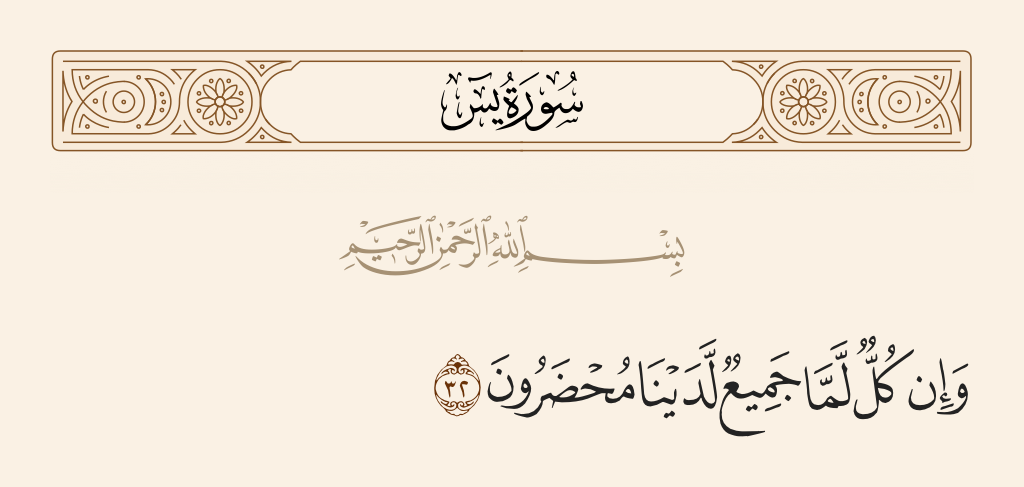 سُورَةُ يسٓ
بِسْمِ ٱللَّهِ ٱلرَّحْمَٰنِ ٱلرَّحِيمِ
وَإِن كُلٌّ لَّمَّا جَمِيعٌ لَّدَيْنَا مُحْضَرُونَ ٣٢